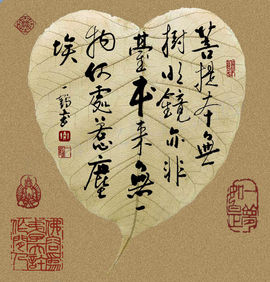 菩提本無
樹明鏡亦非
臺本来無一
物何處惹塵
埃